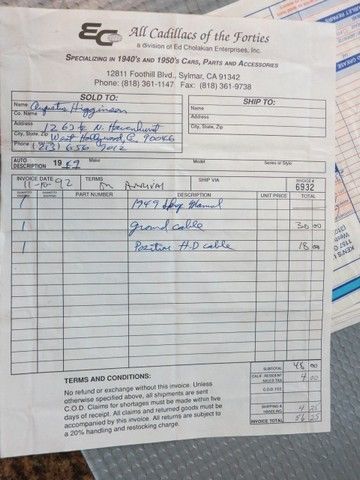 EC All Cadillacs of the Forties
a division of Ed Cholakian Enterprises, Inc.
SPECIALIZING IN 1940's AND 1950's CARS, PARTS AND ACCESSORIES
12811 Foothill Blvd., Sylmar, CA 91342
Phone: (818) 361-1147 Fax: (818) 361-9738
SOLD TO:
Name Augusta Higginson
Co. Name
Address
City, State, Zip West Hollywood, Ca 90046
Phone (213) 656
SHIP TO:
Name
Address
City, State, Zip
AUTO DESCRIPTION 19 49 Make Model Series or Style
INVOICE DATE 1-10-92 TERMS SHIP VIA INVOICE # 6932
PART NUMBER DESCRIPTION UNIT PRICE TOTAL
1 1949 Shop Manual
1 ground cable 30 00
1 Positive H.D cable 18 00
SUBTOTAL 48 00
CALIF. RESIDENT SALES TAX 4 00
C.O.D. FEE
SHIPPING & HANDLING 4 25
INVOICE TOTAL 56 25
TERMS AND CONDITIONS:
No refund or exchange without this invoice. Unless
otherwise specified above, all shipments are sent
C.O.D. Claims for shortages must be made within five
days of receipt. All claims and returned goods must be
accompanied by this invoice. All returns are subject to
a 20% handling and restocking charge.